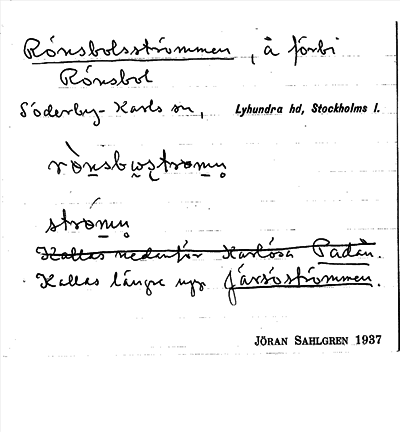 Rönsbolsströmmen, å förbi
Rönsbol
Söderby-Karls sn, Lyhundra hd, Stockholms l.
strömn̥
Kallas nedanför Karlösa Padån.
Kallas längre upp Järsöströmmen.
JÖRAN SAHLGREN 1937